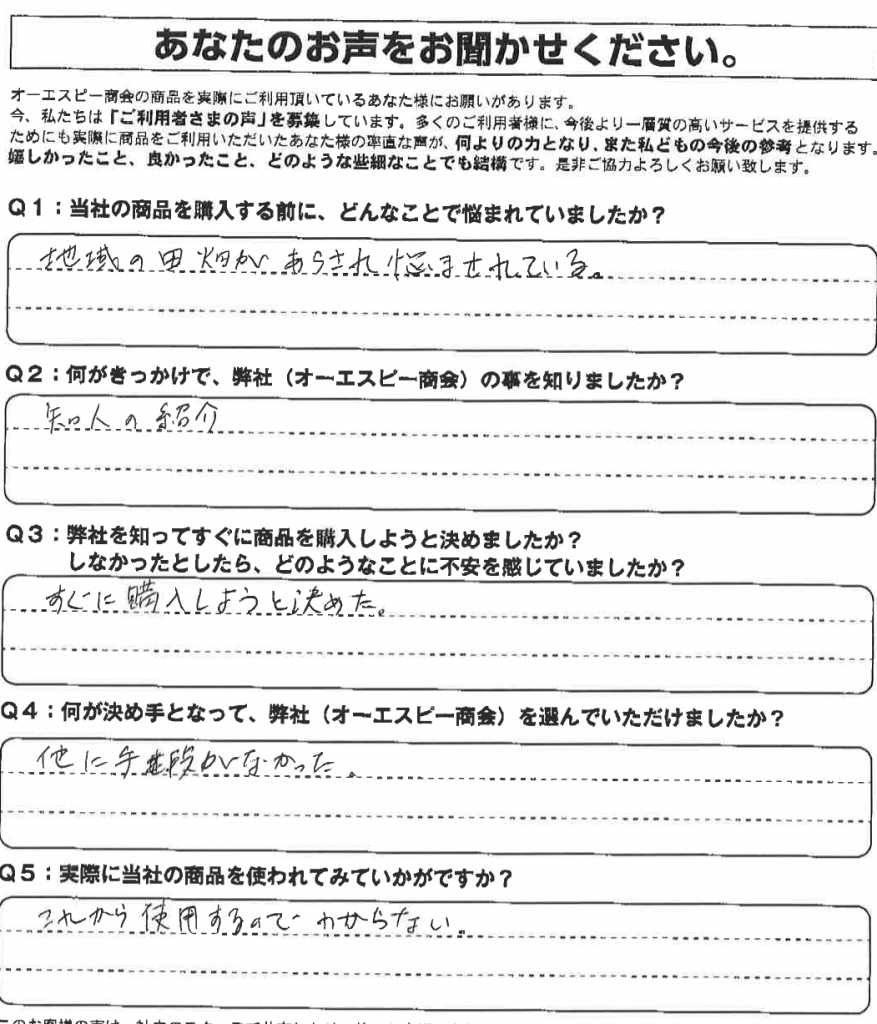 あなたのお声をお聞かせください。
オーエスピー商会の商品を実際にご利用頂いているあなた様にお願いがあります。
今、私たちは「ご利用者さまの声」を募集しています。多くのご利用者様に、今後より一層質の高いサービスを提供する
ためにも実際に商品をご利用いただいたあなた様の率直な声が、何よりの力となり、また私どもの今後の参考となります。
嬉しかったこと、良かったこと、どのような些細なことでも結構です。是非ご協力よろしくお願い致します。
Q1:当社の商品を購入する前に、どんなことで悩まれていましたか?
地域の田畑があらされ悩まされている。
Q2:何がきっかけで、弊社(オーエスピー商会)の事を知りましたか?
知人の紹介
Q3:弊社を知ってすぐに商品を購入しようと決めましたか?
しなかったとしたら、どのようなことに不安を感じていましたか?
すぐに購入しようと決めた。
Q4:何が決め手となって、弊社(オーエスピー商会)を選んでいただけましたか?
他に手段がなかった。
Q5:実際に当社の商品を使われてみていかがですか?
これから使用するのでわからない。